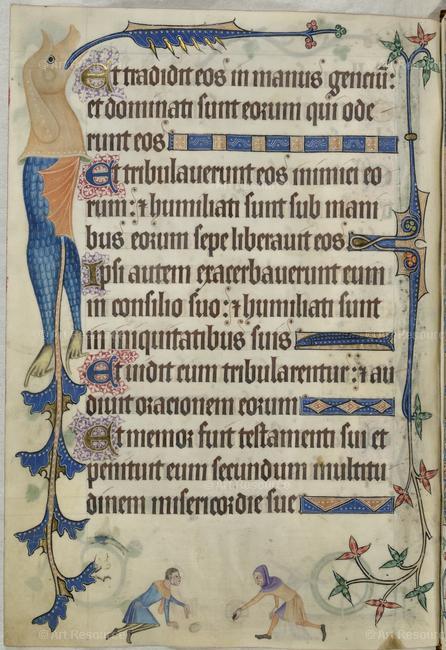 Et tradidit eos in manus genciū:
et dominati sunt eorum qui ode
runt eos
Et tribulauerunt eos inimici eo
rum: ⁊ humiliati sunt sub mani
bus eorum sepe liberauit eos
Ipsi autem exacerbauerunt eum
in consilio suo: ⁊ humiliati sunt
in iniquitatibus suis
Et uidit cum tribularentur: ⁊ au
diuit oracionem eorum
Et memor fuit testamenti sui et
penituit eum secundum multitu
dinem misericordie sue
© Art Resource
© Art Resource